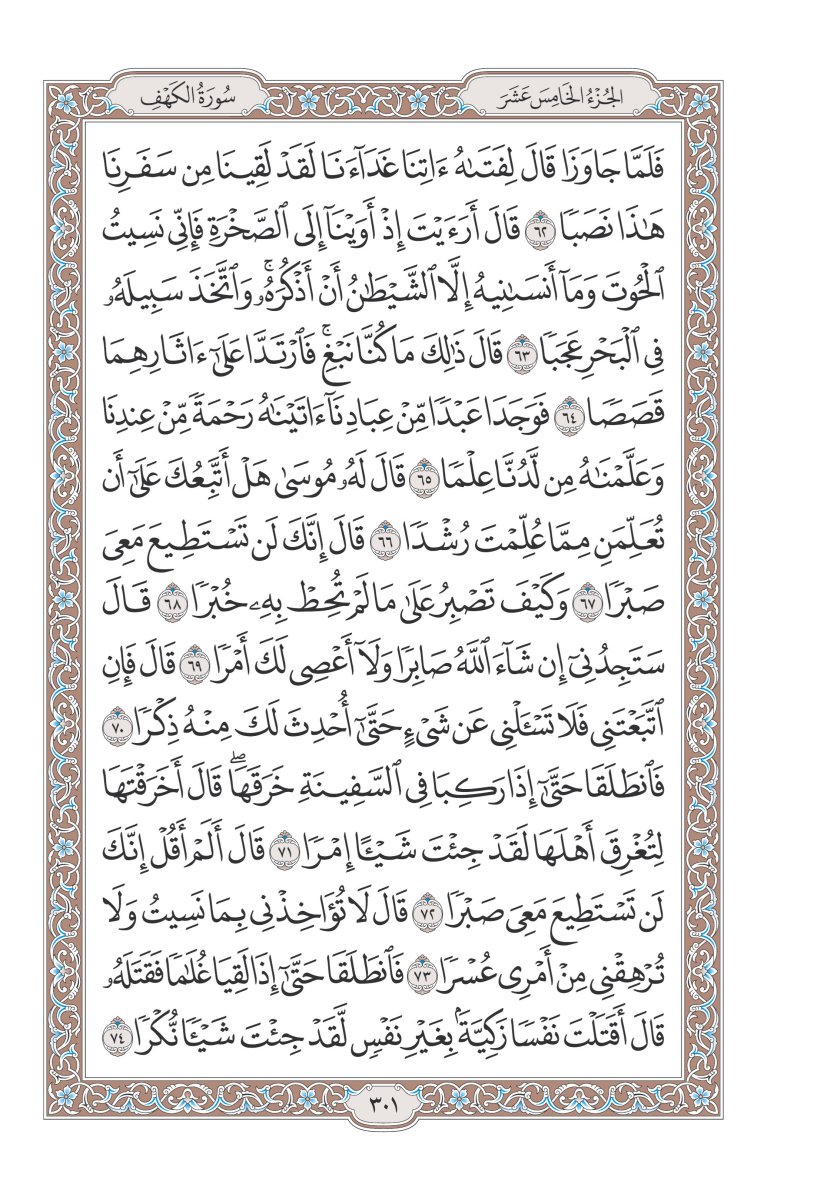 الجُزْءُ الخَامِسَ عَشَرَ
سُورَةُ الكَهْفِ
فَلَمَّا جَاوَزَا قَالَ لِفَتَىٰهُ ءَاتِنَا غَدَآءَنَا لَقَدْ لَقِينَا مِن سَفَرِنَا
هَٰذَا نَصَبًا ٦٢ قَالَ أَرَءَيْتَ إِذْ أَوَيْنَآ إِلَى ٱلصَّخْرَةِ فَإِنِّي نَسِيتُ
ٱلْحُوتَ وَمَآ أَنسَىٰنِيهُ إِلَّا ٱلشَّيْطَٰنُ أَنْ أَذْكُرَهُۥۚ وَٱتَّخَذَ سَبِيلَهُۥ
فِي ٱلْبَحْرِ عَجَبًا ٦٣ قَالَ ذَٰلِكَ مَا كُنَّا نَبْغِۚ فَٱرْتَدَّا عَلَىٰٓ ءَاثَارِهِمَا
قَصَصًا ٦٤ فَوَجَدَا عَبْدًا مِّنْ عِبَادِنَآ ءَاتَيْنَٰهُ رَحْمَةً مِّنْ عِندِنَا
وَعَلَّمْنَٰهُ مِن لَّدُنَّا عِلْمًا ٦٥ قَالَ لَهُۥ مُوسَىٰ هَلْ أَتَّبِعُكَ عَلَىٰٓ أَن
تُعَلِّمَنِ مِمَّا عُلِّمْتَ رُشْدًا ٦٦ قَالَ إِنَّكَ لَن تَسْتَطِيعَ مَعِيَ
صَبْرًا ٦٧ وَكَيْفَ تَصْبِرُ عَلَىٰ مَا لَمْ تُحِطْ بِهِۦ خُبْرًا ٦٨ قَالَ
سَتَجِدُنِيٓ إِن شَآءَ ٱللَّهُ صَابِرًا وَلَآ أَعْصِي لَكَ أَمْرًا ٦٩ قَالَ فَإِنِ
ٱتَّبَعْتَنِي فَلَا تَسْـَٔلْنِي عَن شَيْءٍ حَتَّىٰٓ أُحْدِثَ لَكَ مِنْهُ ذِكْرًا ٧٠
فَٱنطَلَقَا حَتَّىٰٓ إِذَا رَكِبَا فِي ٱلسَّفِينَةِ خَرَقَهَاۖ قَالَ أَخَرَقْتَهَا
لِتُغْرِقَ أَهْلَهَا لَقَدْ جِئْتَ شَيْـًٔا إِمْرًا ٧١ قَالَ أَلَمْ أَقُلْ إِنَّكَ
لَن تَسْتَطِيعَ مَعِيَ صَبْرًا ٧٢ قَالَ لَا تُؤَاخِذْنِي بِمَا نَسِيتُ وَلَا
تُرْهِقْنِي مِنْ أَمْرِي عُسْرًا ٧٣ فَٱنطَلَقَا حَتَّىٰٓ إِذَا لَقِيَا غُلَٰمًا فَقَتَلَهُۥ
قَالَ أَقَتَلْتَ نَفْسًا زَكِيَّةًۢ بِغَيْرِ نَفْسٍ لَّقَدْ جِئْتَ شَيْـًٔا نُّكْرًا ٧٤
٣٠١